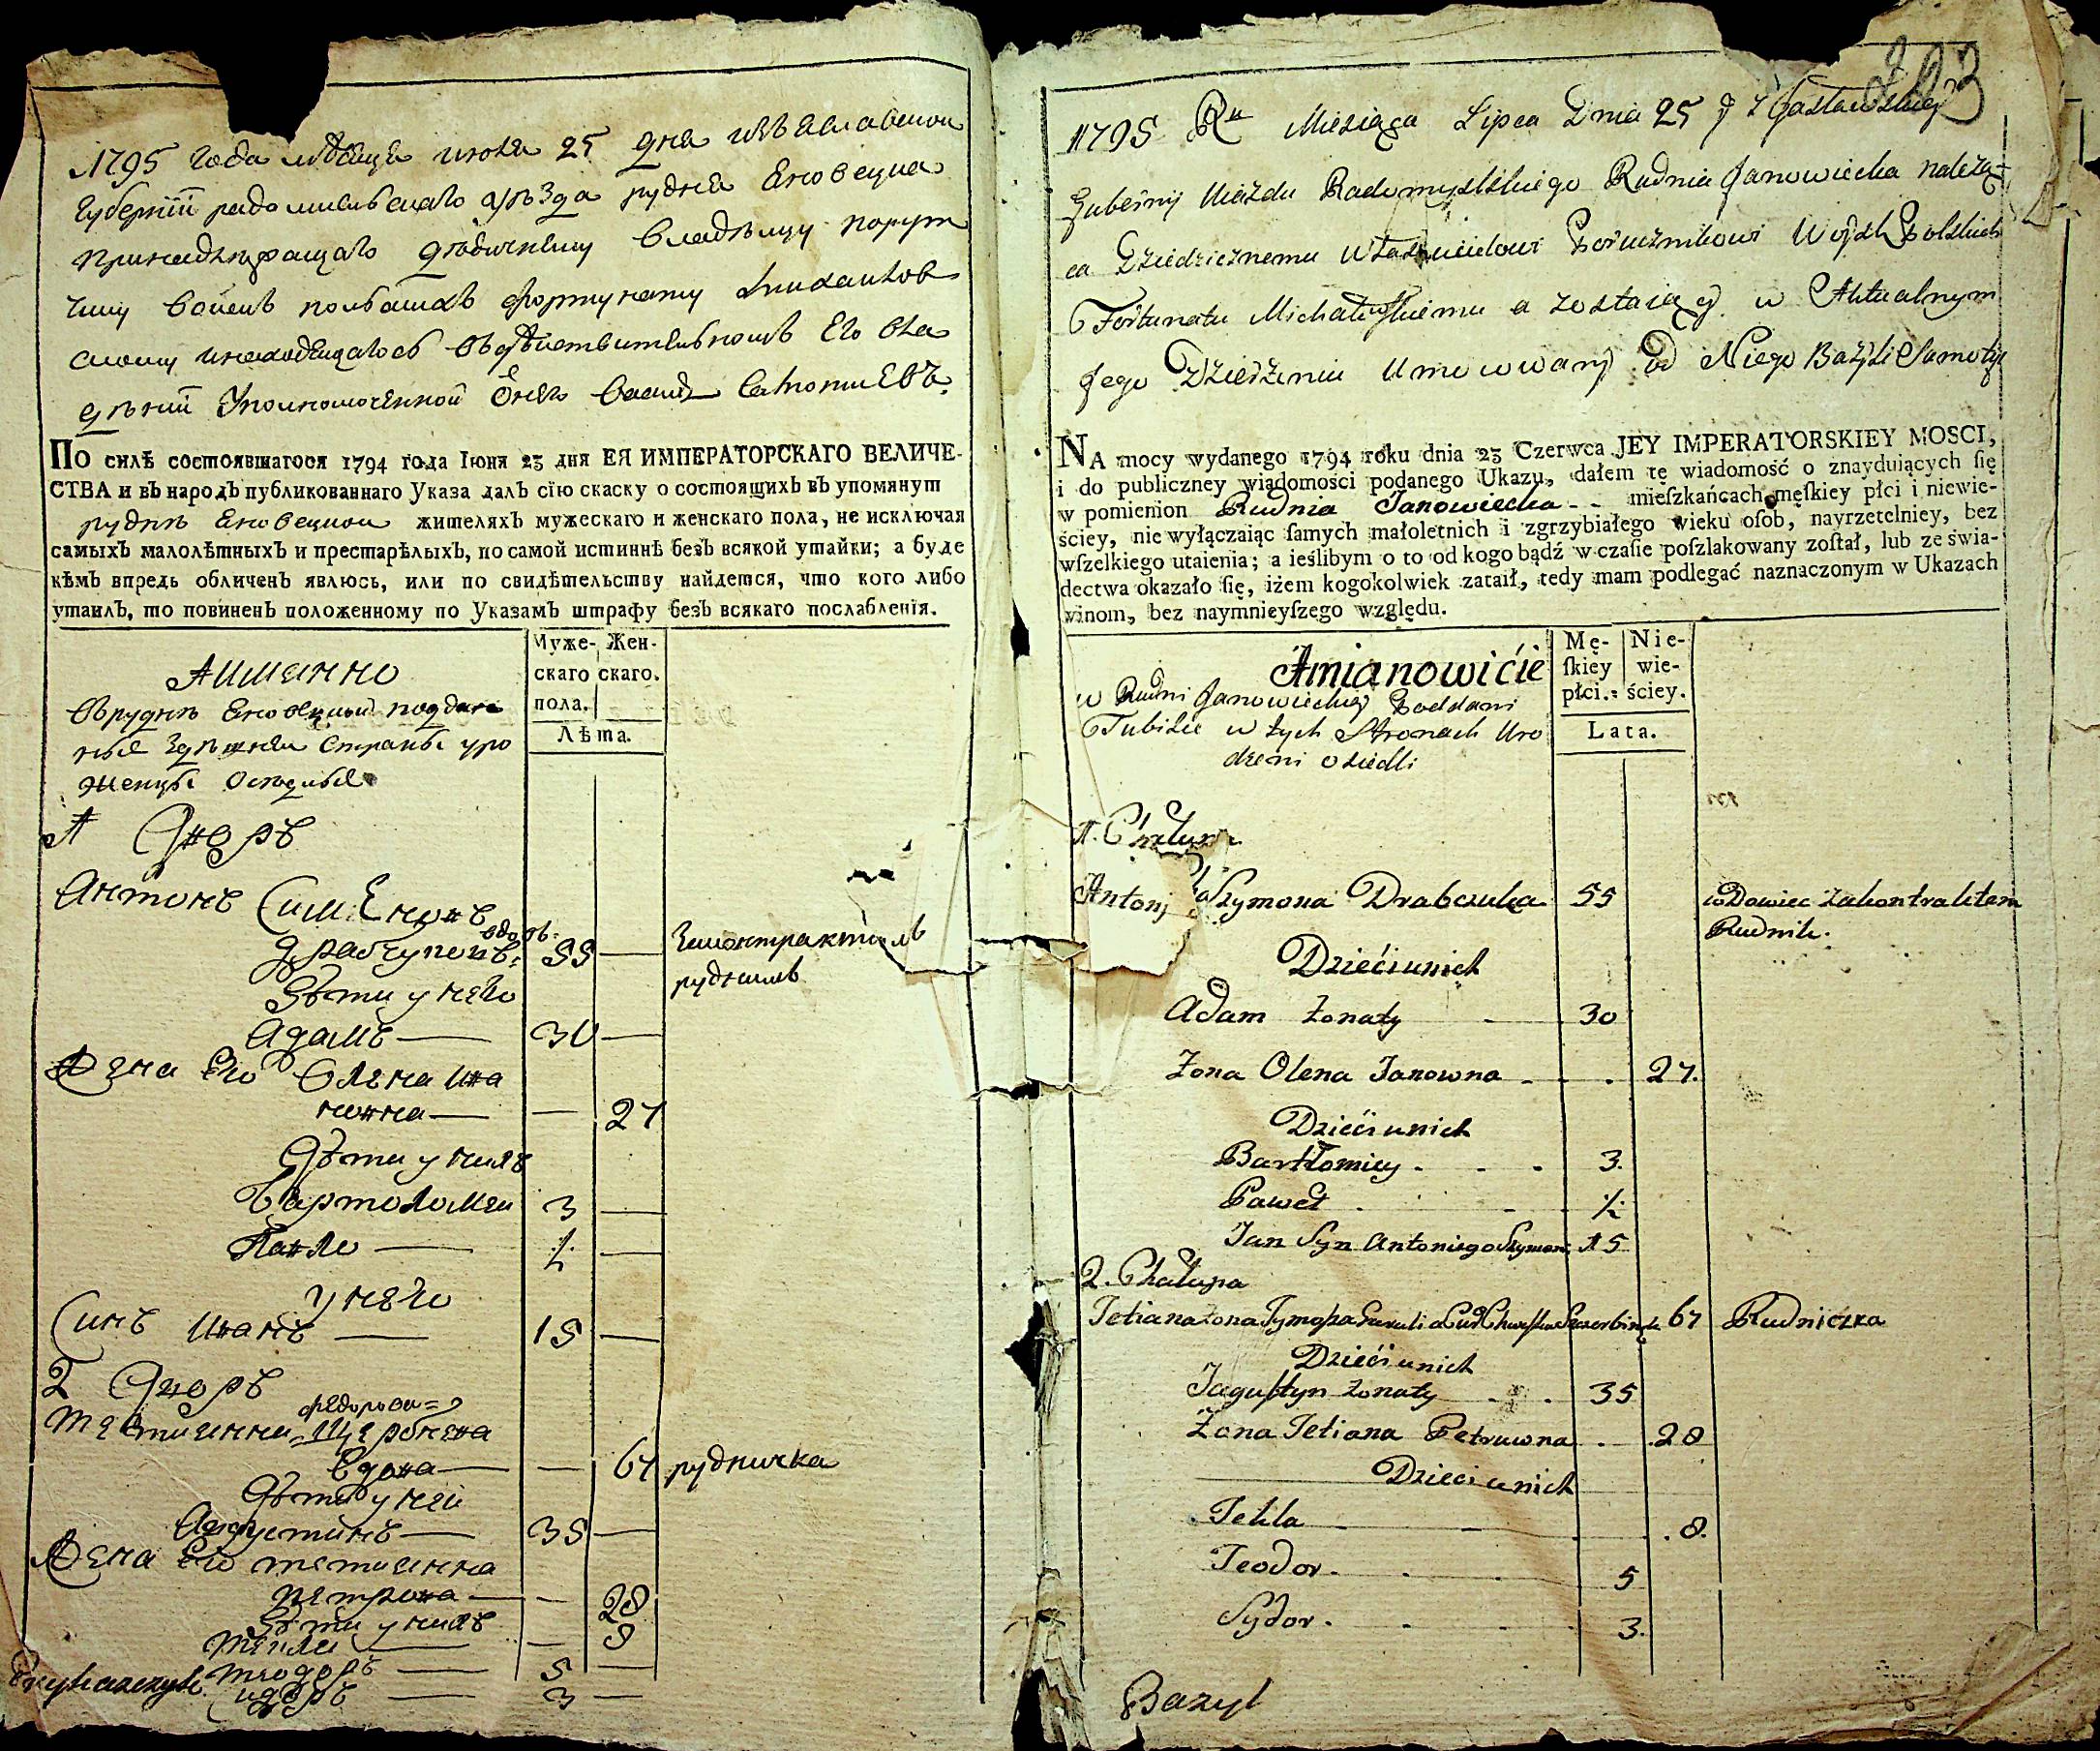 1795 года месяца июля 25 дня изяславской
губернїи радомисльского уезда рудня Яновецка
принадлежащаго дедичному владелцу поруч
чику войскъ полскихъ фортунату михалков
скому находящагось въ действителномъ его вла
дении Уполномоченной
По силѣ состоявшагося 1794 года Іюня 23 дня ЕЯ ИМПЕРАТОРСКАГО ВЕЛИЧЕ-
СТВА и въ народъ публикованнаго Указа далъ сїю скаску о состоящихъ въ упомянут
рудне Яновецкой жителяхъ мужескаго и женскаго пола, не исключая
самыхъ малолѣтныхъ и престарѣлыхъ, по самой истиннѣ безъ всякой утайки; а буде
кѣмъ впредь обличенъ явлюсь, или по свидѣтельству найдется, что кого либо
утаилъ, то повиненъ положенному по Указамъ штрафу безъ всякаго послабленія.
Муже- Жен-
скаго скаго.
пола.
Лѣта.
Аимянно
въ рудне Яновецкой поддан
ные здешней страны уро
женцы
1 Дворъ
Антонъ Сименовъ
вдов:
драбчуковъ: 55 — законтрактомъ
рудникъ
Дѣти у него
Адамъ — 30 —
Жена его Олена ива
новна — — 27
Дѣти у нихъ
Бартоломей 3 —
Павло — ½ —
у него
Синъ иванъ — 15 —
2 Дворъ
федорова=
Тетиянна Щербнева
вдова — — 67 рудничка
Дѣти у ней
Августинъ — 35 —
Жена его тетиянна
петрова — — 28
Дѣти у нихъ
Текля — — 8
теодоръ — 5 —
сидоръ — 3 —
203
1795 Ru Miesiąca Lipca Dnia 25 J Zasławskiey
Gubernij Uiazdu Radomyslskiego Rudnia Janowiecka należą-
ca Dziedzicznemu Właścicielowi Porucznikowi Woysk Polskich
Fortunatu Michałowskiemu a zostaiącey w Aktualnym
Jego Dzierżeniu Umocowany od Niego Bazyli
NA mocy wydanego 1794 roku dnia 23 Czerwca JEY IMPERATORSKIEY MOSCI,
i do publiczney wiadomości podanego Ukazu, dałem tę wiadomość o znayduiących ſię
w pomienion Rudnia Janowiecka - - mieſzkańcach męſkiey płci i niewie-
ściey, nie wyłączaiąc ſamych małoletnich i zgrzybiałego wieku oſob, nayrzetelniey, bez
wſzelkiego utaienia; a ieślibym o to od kogo bądź w czaſie poſzlakowany zoſtał, lub ze świa-
dectwa okazało ſię, iżem kogokolwiek zataił, tedy mam podlegać naznaczonym w Ukazach
winom, bez naymnieyſzego względu.
Mę- Nie-
ſkiey wie-
płci. ściey.
Lata.
Amianowićie
w Rudni Janowieckiey Poddani
Tubilce w tych Stronach Uro
dzeni osiedli
1. Chałupa
Antonj Szymona Drabczuka 55 wdowiec zakontraktem
Rudnik.
Dzieći unich
Adam żonaty 30
Żona Olena Janowna 27.
Dzieći unich
Bartłomiey 3.
Paweł ½
Jan Syn Antoniego Szymon: 15
2. Chałupa
Tetiana żona 67 Rudniczka
Dzieći unich
Jaguſtyn żonaty 35
Żona Tetiana Petruwna 28
Dzieci unich
Tekla 8.
Teodor 5
Sydor 3.
Bazyl